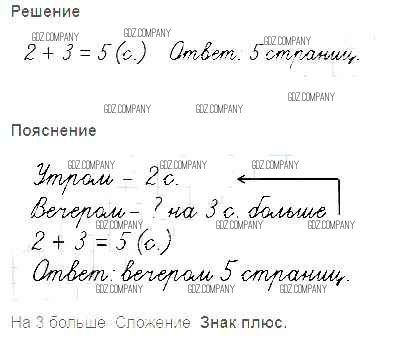 Решение
GDZ.COMPANY GDZ.COMPANY GDZ.COMPANY
2 + 3 = 5 (с.) Ответ: 5 страниц.
GDZ.COMPANY GDZ.COMPANY GDZ.COMPANY
Пояснение
GDZ.COMPANY GDZ.COMPANY GDZ.COMPANY
Утром – 2 с.
Вечером – ? на 3 с. больше
GDZ.COMPANY GDZ.COMPANY GDZ.COMPANY
2 + 3 = 5 (с.)
Ответ: вечером 5 страниц.
GDZ.COMPANY GDZ.COMPANY GDZ.COMPANY
На 3 больше Сложение Знак плюс.